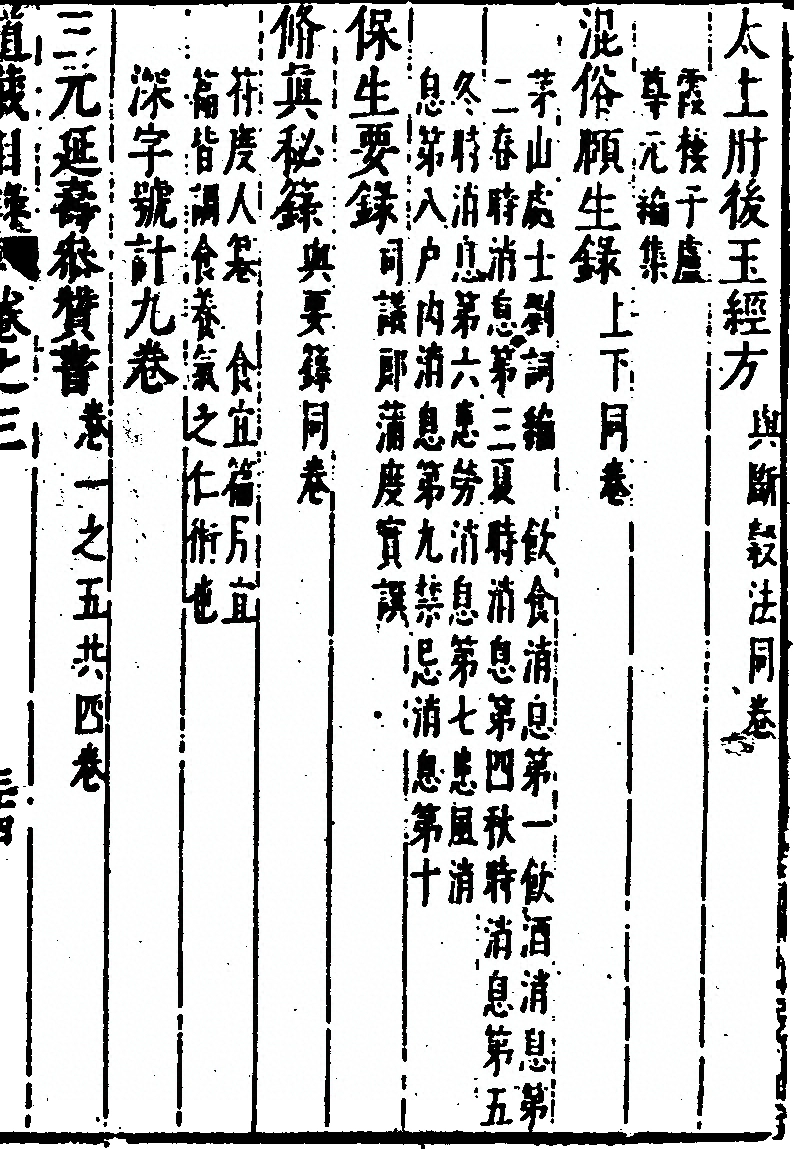 太上肘後玉經方與斷穀法同卷
霞棲子盧
尊元編集
混俗頤生錄上下同卷
茅山處士劉詞編　飲食消息第一飲酒消息第
二春時消息第三夏時消息第四秋時消息第五
冬時消息第六患勞消息第七患風消
息第八户內消息第九禁忌消息第十
保生要錄司議郎蒲虔貫譔
修真秘籙與要籙同卷
符度人篹　食宜篇月宜
篇皆謂食養氣之仁術也
深字號計九卷
三元延壽叅贊書卷一之五共四卷
道藏目錄卷之三